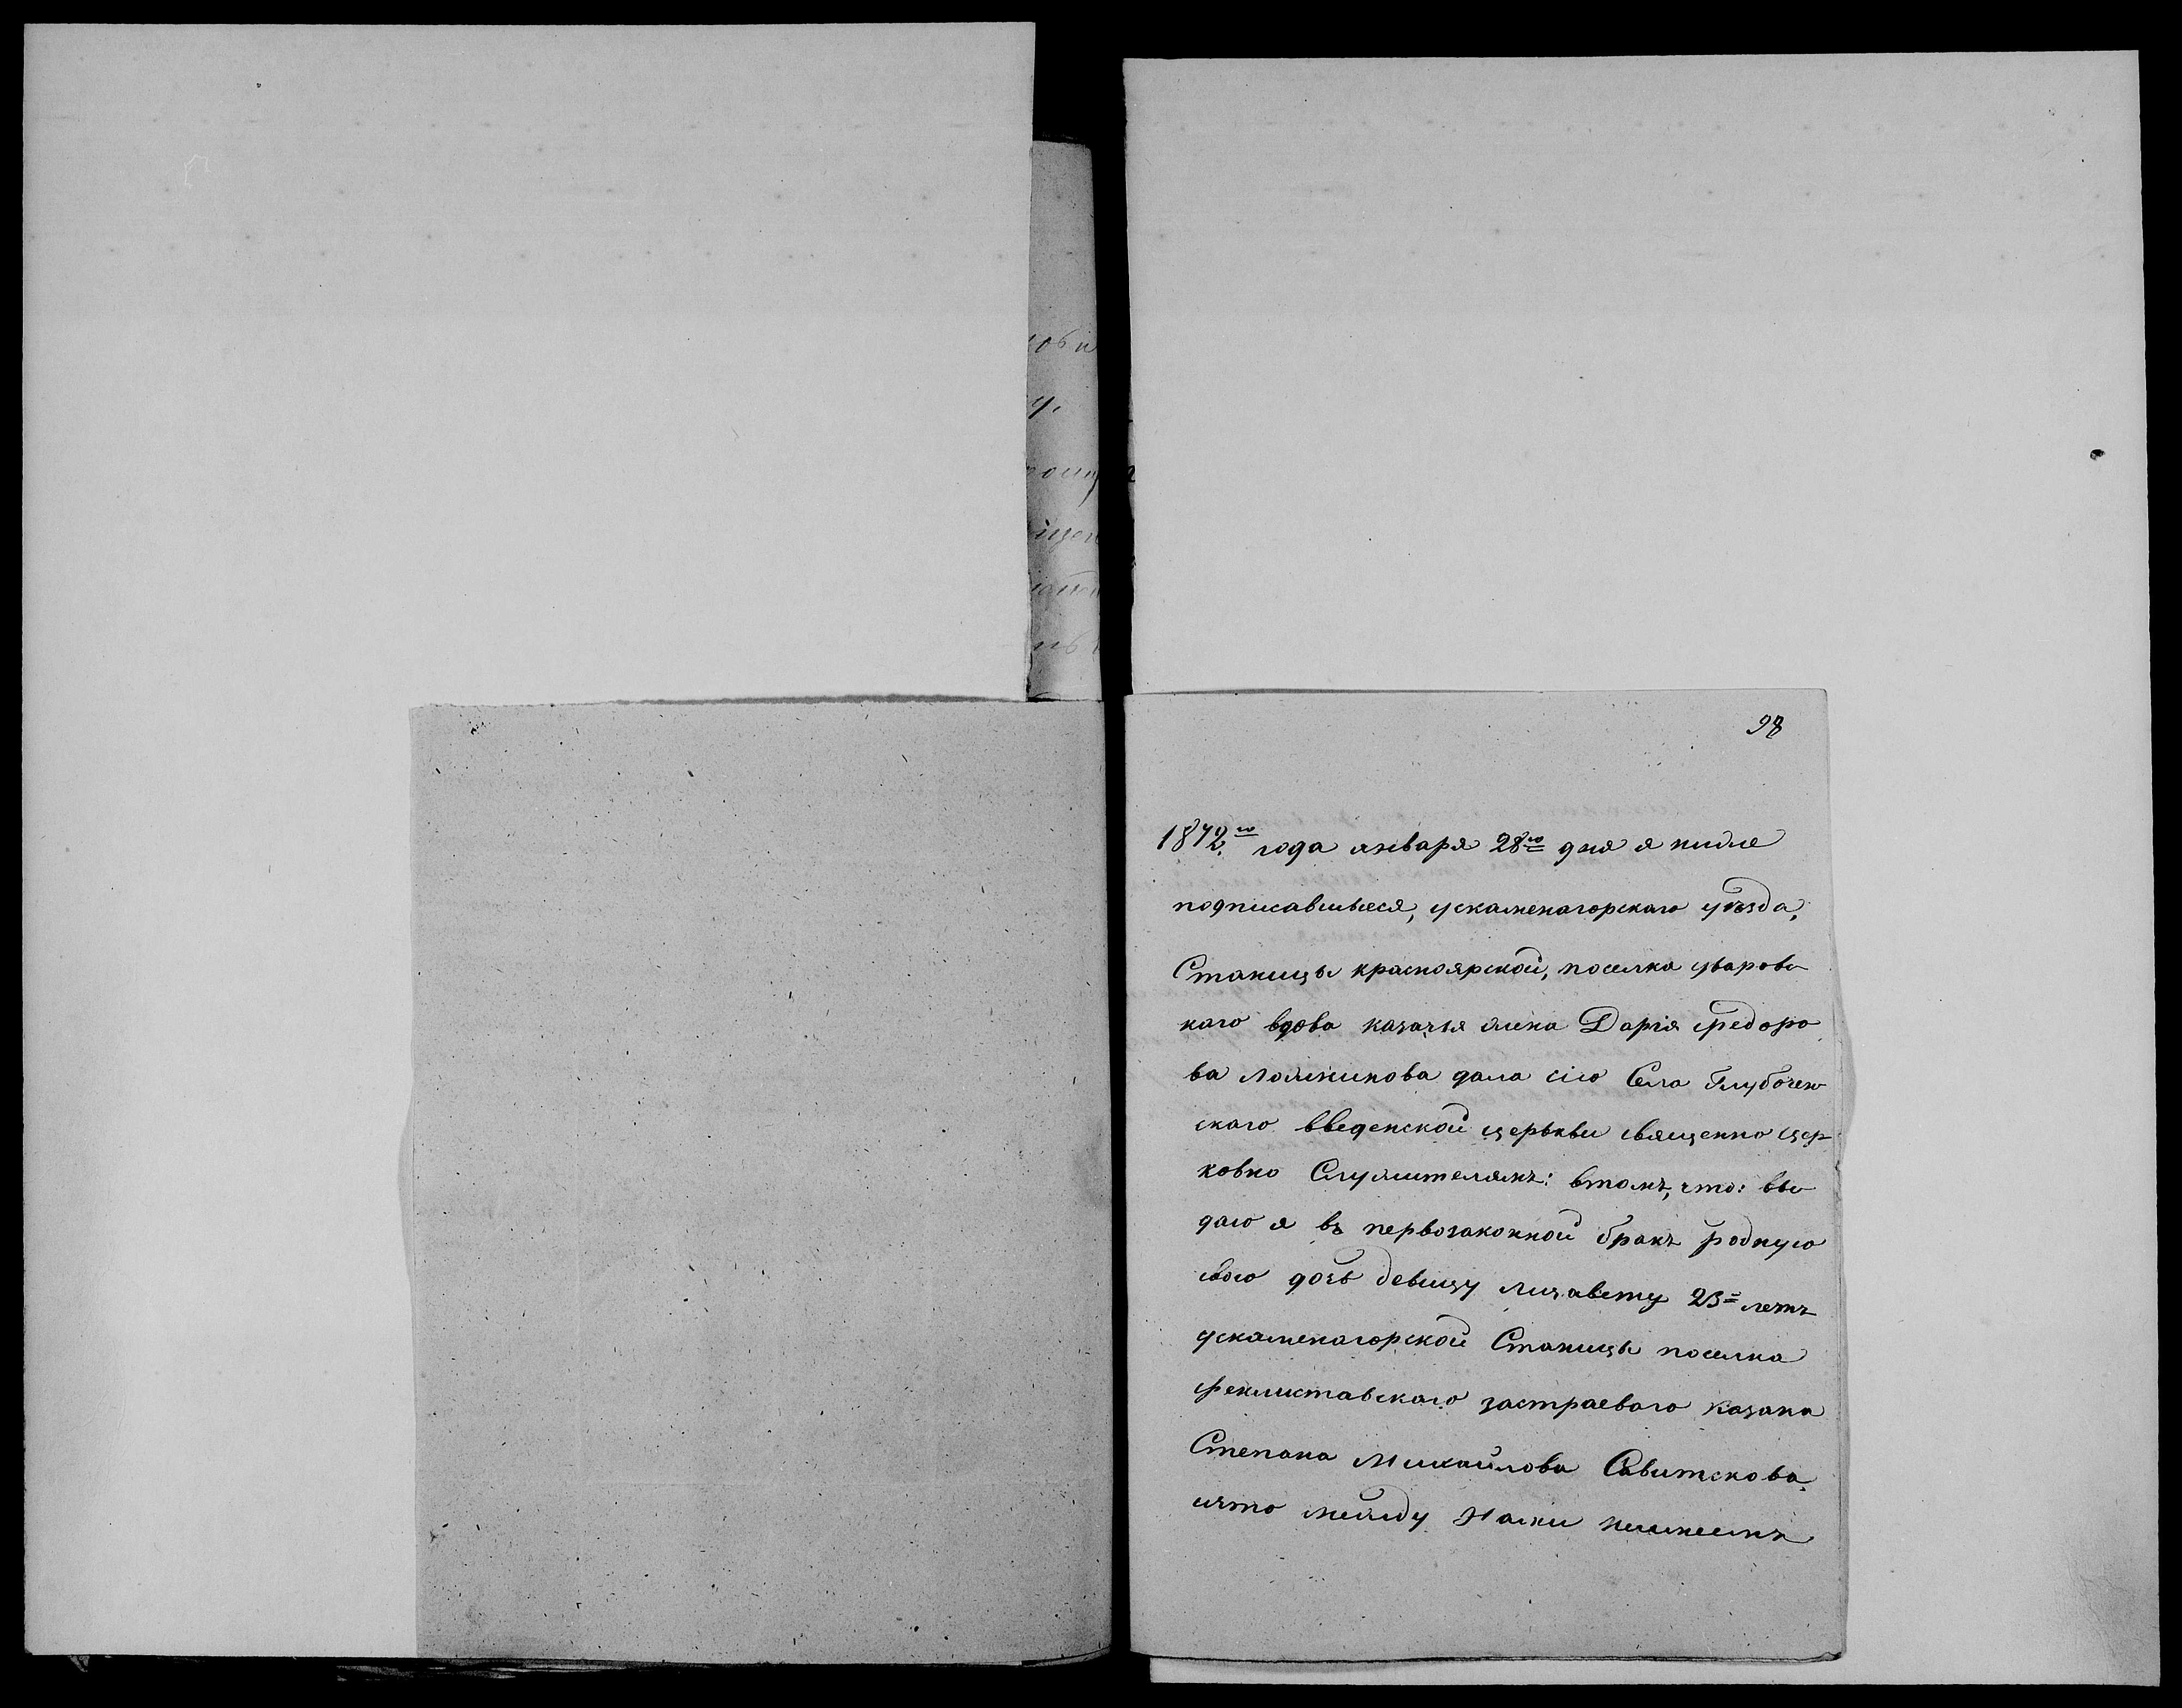 98
1872го года января 28го дня я ниже
подписавшыеся, ускаменагорскаго уѣзда,
Станицы красноярской, поселка уваровс
каго вдова казачья жена Дарія федоро
ва Ложникова дала сію Села Глубочен
скаго введенской церькви священно цер
ковно Служителямъ: втомъ, что: вы
даю я въ первозаконной бракъ родную
свою дочь девицу лизавету 23= летъ
ускаменагорской Станицы поселка
феклиставскаго застраеваго казака
Степана Михайлова Савитскова
ично между Нами